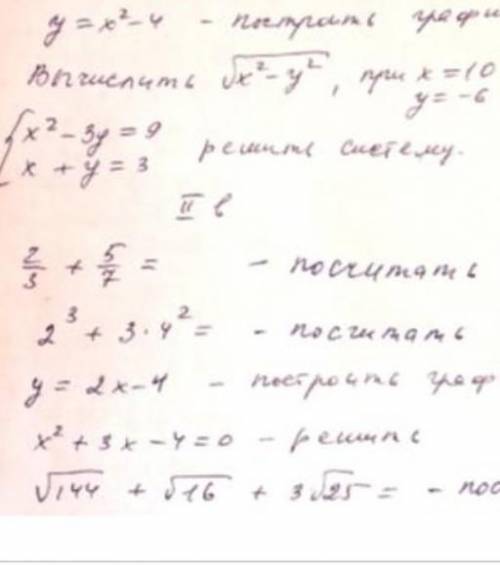 y = x² - 4 - построить графи
Вычислить √(x² - y²), при x = 10
y = -6
{ x² - 3y = 9
x + y = 3 решить систему.
II в
2/3 + 5/7 = - посчитать
2³ + 3·4² = - посчитать
y = 2x - 4 - построить граф
x² + 3x - 4 = 0 - решить
√144 + √16 + 3√25 = - пос